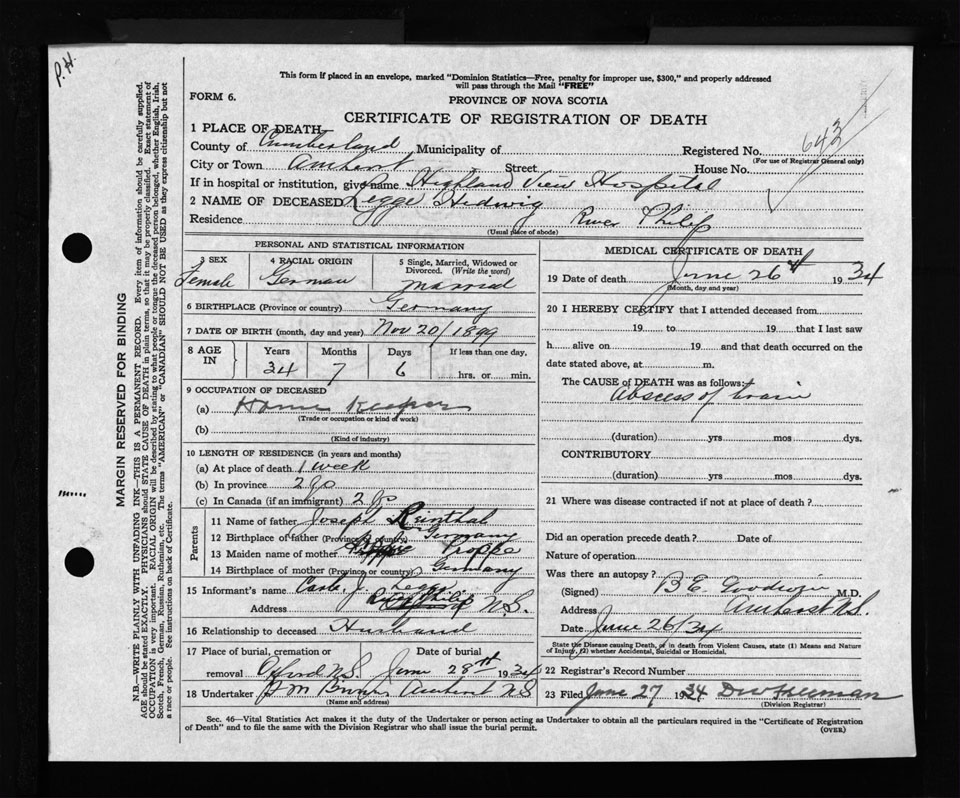 P.H.
This form if placed in an envelope, marked "Dominion Statistics—Free, penalty for improper use, $300," and properly addressed
will pass through the Mail "FREE"
FORM 6.
PROVINCE OF NOVA SCOTIA
CERTIFICATE OF REGISTRATION OF DEATH
1 PLACE OF DEATH
County of Cumberland Municipality of Registered No. 643
(For use of Registrar General only)
City or Town Amherst Street House No.
If in hospital or institution, give name Highland View Hospital
2 NAME OF DECEASED Legge Hedwig
Residence River Philip
(Usual place of abode)
PERSONAL AND STATISTICAL INFORMATION
3 SEX 4 RACIAL ORIGIN 5 Single, Married, Widowed or
Divorced. (Write the word)
Female German Married
6 BIRTHPLACE (Province or country) Germany
7 DATE OF BIRTH (month, day and year) Nov 20/1899
8 AGE IN Years Months Days If less than one day.
34 7 6 hrs. or min.
9 OCCUPATION OF DECEASED
(a) Home Keeper
(Trade or occupation or kind of work)
(b)
(Kind of industry)
10 LENGTH OF RESIDENCE (in years and months)
(a) At place of death 1 week
(b) In province 2 yo
(c) In Canada (if an immigrant) 2 yo
Parents
11 Name of father Joseph Rinthal
12 Birthplace of father (Province or country) Germany
13 Maiden name of mother Proppe
14 Birthplace of mother (Province or country) Germany
15 Informant's name Carl J. Legge
Address River Philip N.S.
16 Relationship to deceased Husband
17 Place of burial, cremation or Date of burial
removal Oxford N.S. June 28th 1934
18 Undertaker Amherst N S
(Name and address)
MEDICAL CERTIFICATE OF DEATH
19 Date of death June 26th 1934
(Month, day and year)
20 I HEREBY CERTIFY that I attended deceased from
19 to 19 that I last saw
h alive on 19 and that death occurred on the
date stated above, at m.
The CAUSE of DEATH was as follows:
Abscess of brain
(duration) yrs mos dys.
CONTRIBUTORY
(duration) yrs mos dys.
21 Where was disease contracted if not at place of death?
Did an operation precede death? Date of
Nature of operation
Was there an autopsy?
(Signed) B E Goodwin M.D.
Address Amherst N.S.
Date June 26/34
State the Disease causing Death, or in death from Violent Causes, state (1) Means and Nature
of Injury, (2) whether Accidental, Suicidal or Homicidal.
22 Registrar's Record Number
23 Filed June 27 1934 Freeman
(Division Registrar)
Sec. 46—Vital Statistics Act makes it the duty of the Undertaker or person acting as Undertaker to obtain all the particulars required in the "Certificate of Registration
of Death" and to file the same with the Division Registrar who shall issue the burial permit. (OVER)
MARGIN RESERVED FOR BINDING
N.B.—WRITE PLAINLY WITH UNFADING INK—THIS IS A PERMANENT RECORD. Every item of information should be carefully supplied.
AGE should be stated EXACTLY. PHYSICIANS should STATE CAUSE OF DEATH in plain terms, so that it may be properly classified. Exact statement of
OCCUPATION is very important. RACIAL ORIGIN will be described by stating to what people or tongue the deceased person belonged, whether English, Irish,
Scotch, French, German, Russian, Ruthenian, etc. The terms "AMERICAN" or "CANADIAN" SHOULD NOT BE USED as they express citizenship but not
a race or people. See instructions on back of Certificate.